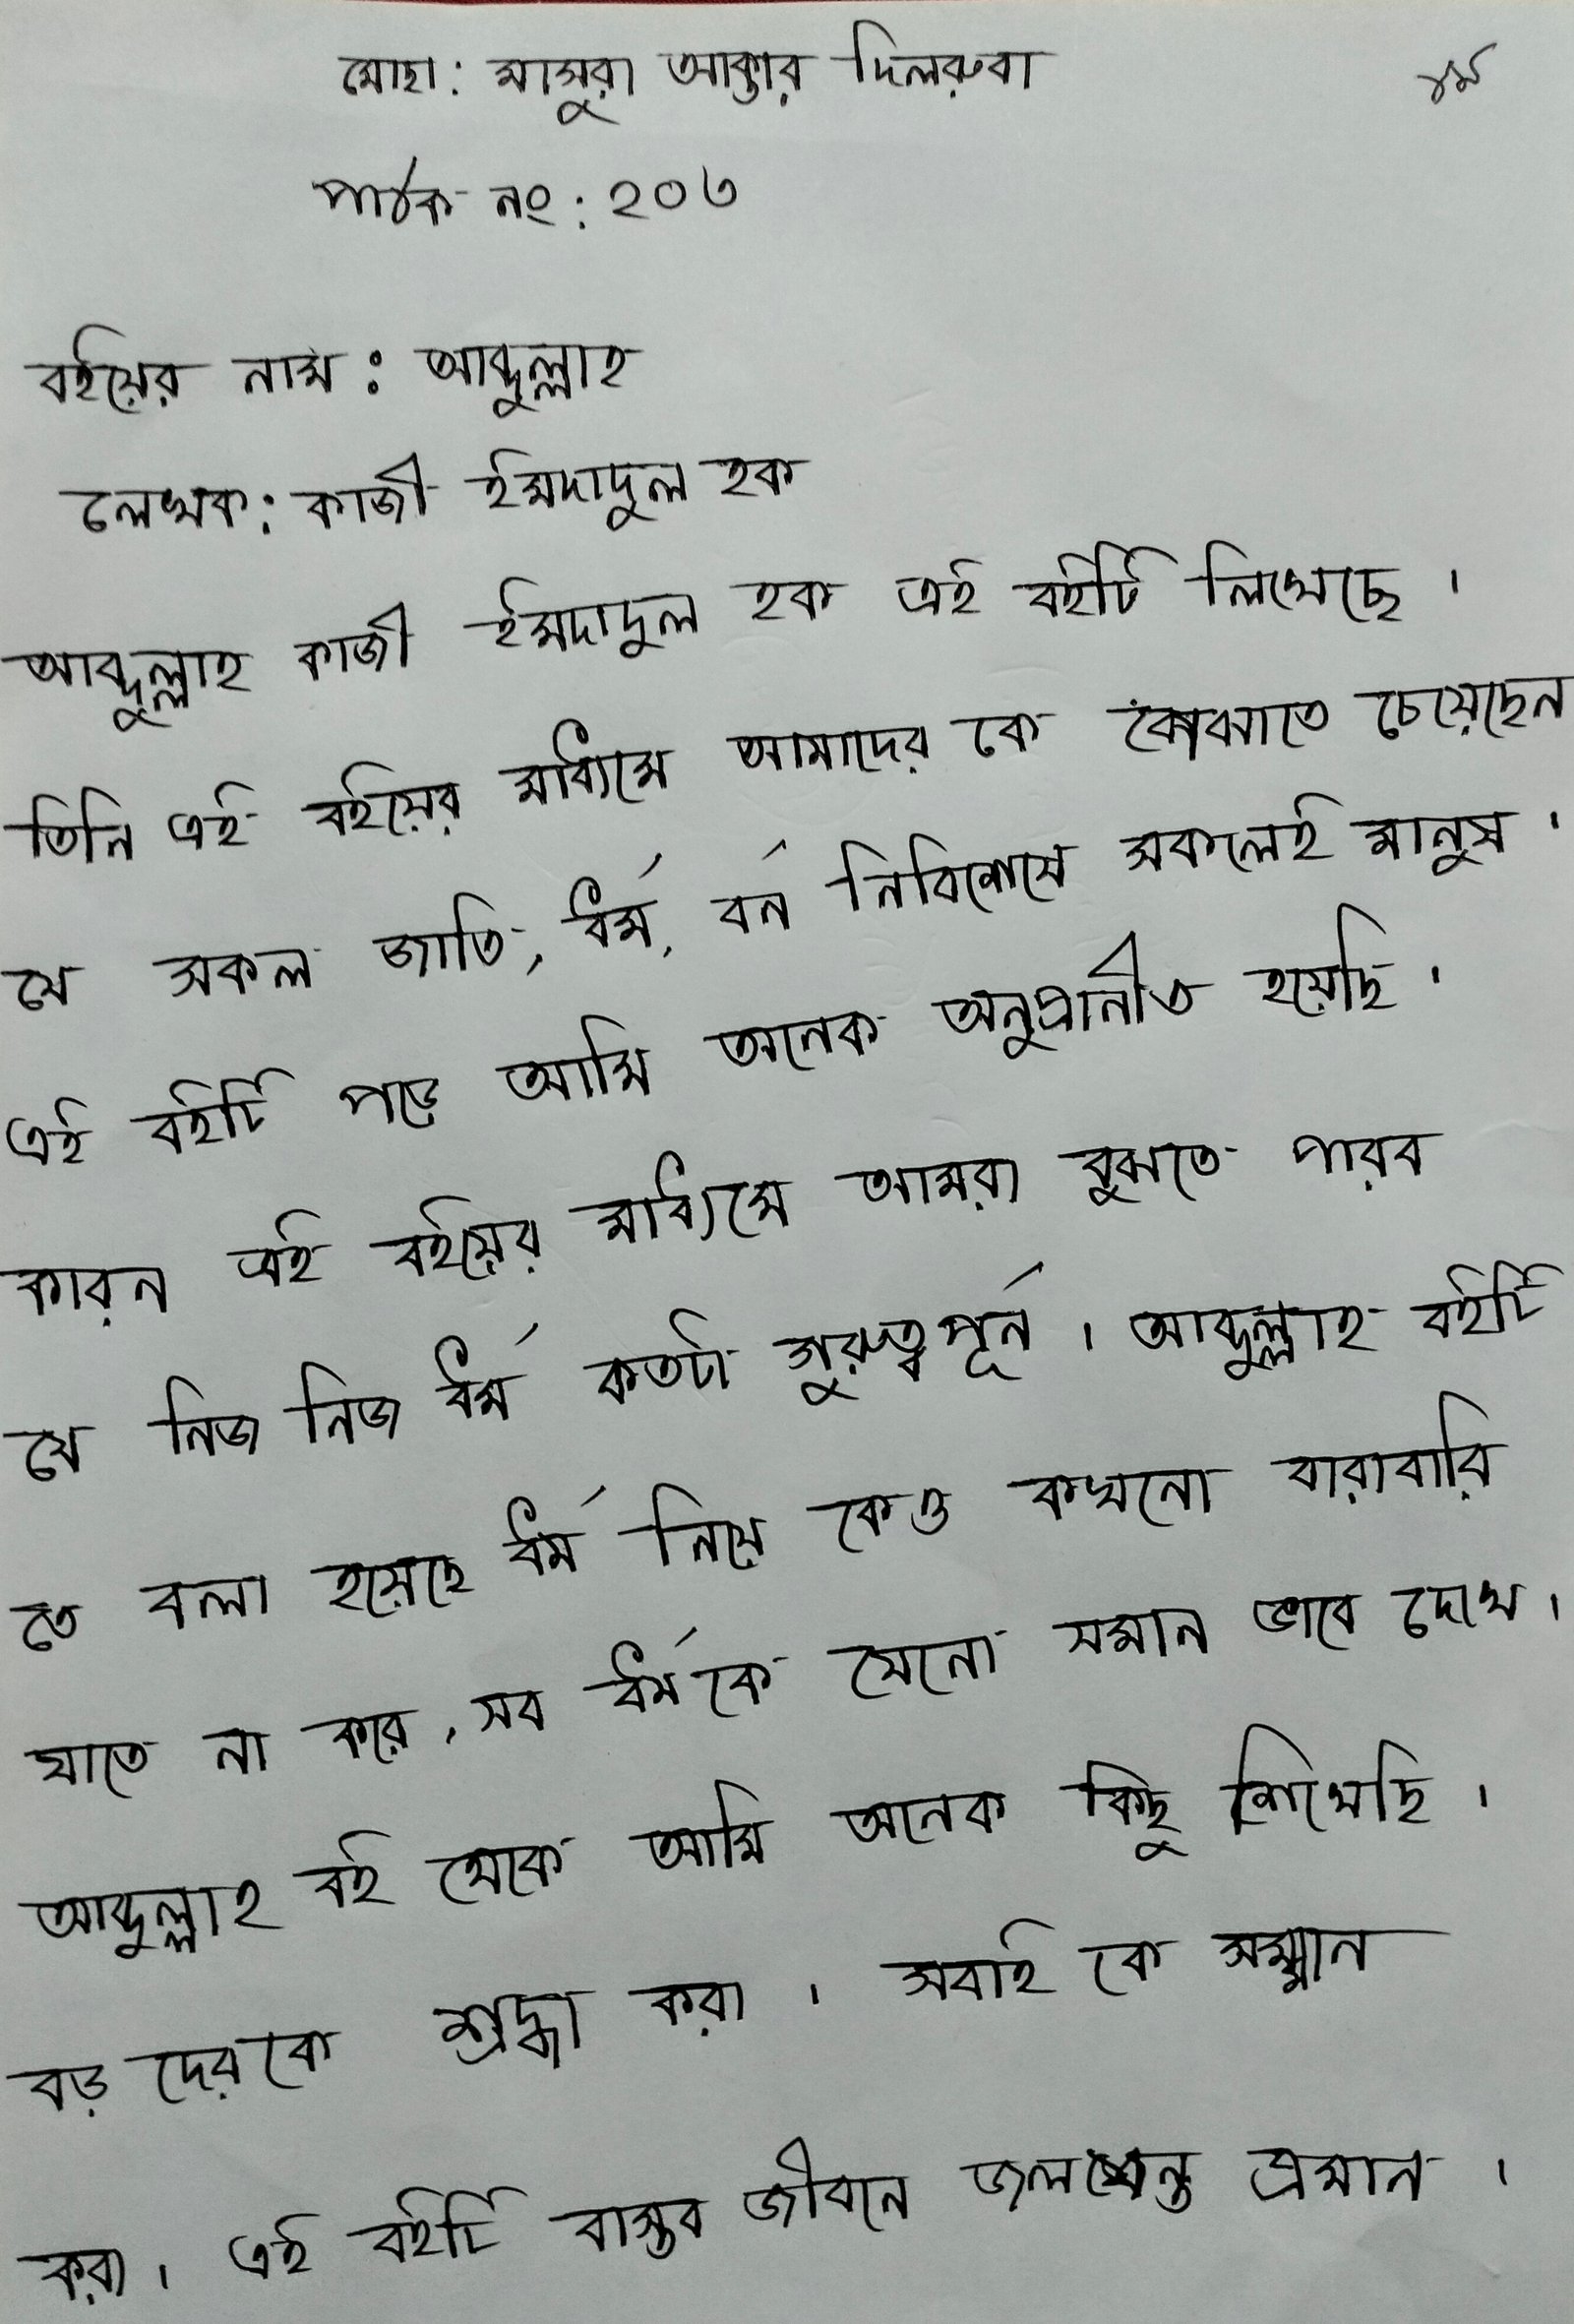 মোছা: মাসুরা আক্তার দিলরুবা
৮ম
পাঠক নং: ২০৬
বইয়ের নাম: আব্দুল্লাহ
লেখক: কাজী ইমদাদুল হক
আব্দুল্লাহ কাজী ইমদাদুল হক এই বইটি লিখেছে।
তিনি এই বইয়ের মাধ্যিমে আমাদের কে বোঝাতে চেয়েছেন
যে সকল জাতি, ধর্ম, বর্ন নির্বিশেষে সকলেই মানুষ।
এই বইটি পড়ে আমি অনেক অনুপ্রানীত হয়েছি।
কারন এই বইয়ের মাধ্যিমে আমরা বুঝতে পারব
যে নিজ নিজ ধর্ম কতটা গুরুত্বপূর্ন। আব্দুল্লাহ বইটি
তে বলা হয়েছে ধর্ম নিয়ে কেও কখনো বারাবারি
যাতে না করে, সব ধর্মকে যেনো সমান ভাবে দেখে।
আব্দুল্লাহ বই থেকে আমি অনেক কিছু শিখেছি।
বড় দেরকে শ্রদ্ধা করা। সবাই কে সম্মান
করা। এই বইটি বাস্তব জীবনে জলন্ত প্রমান।